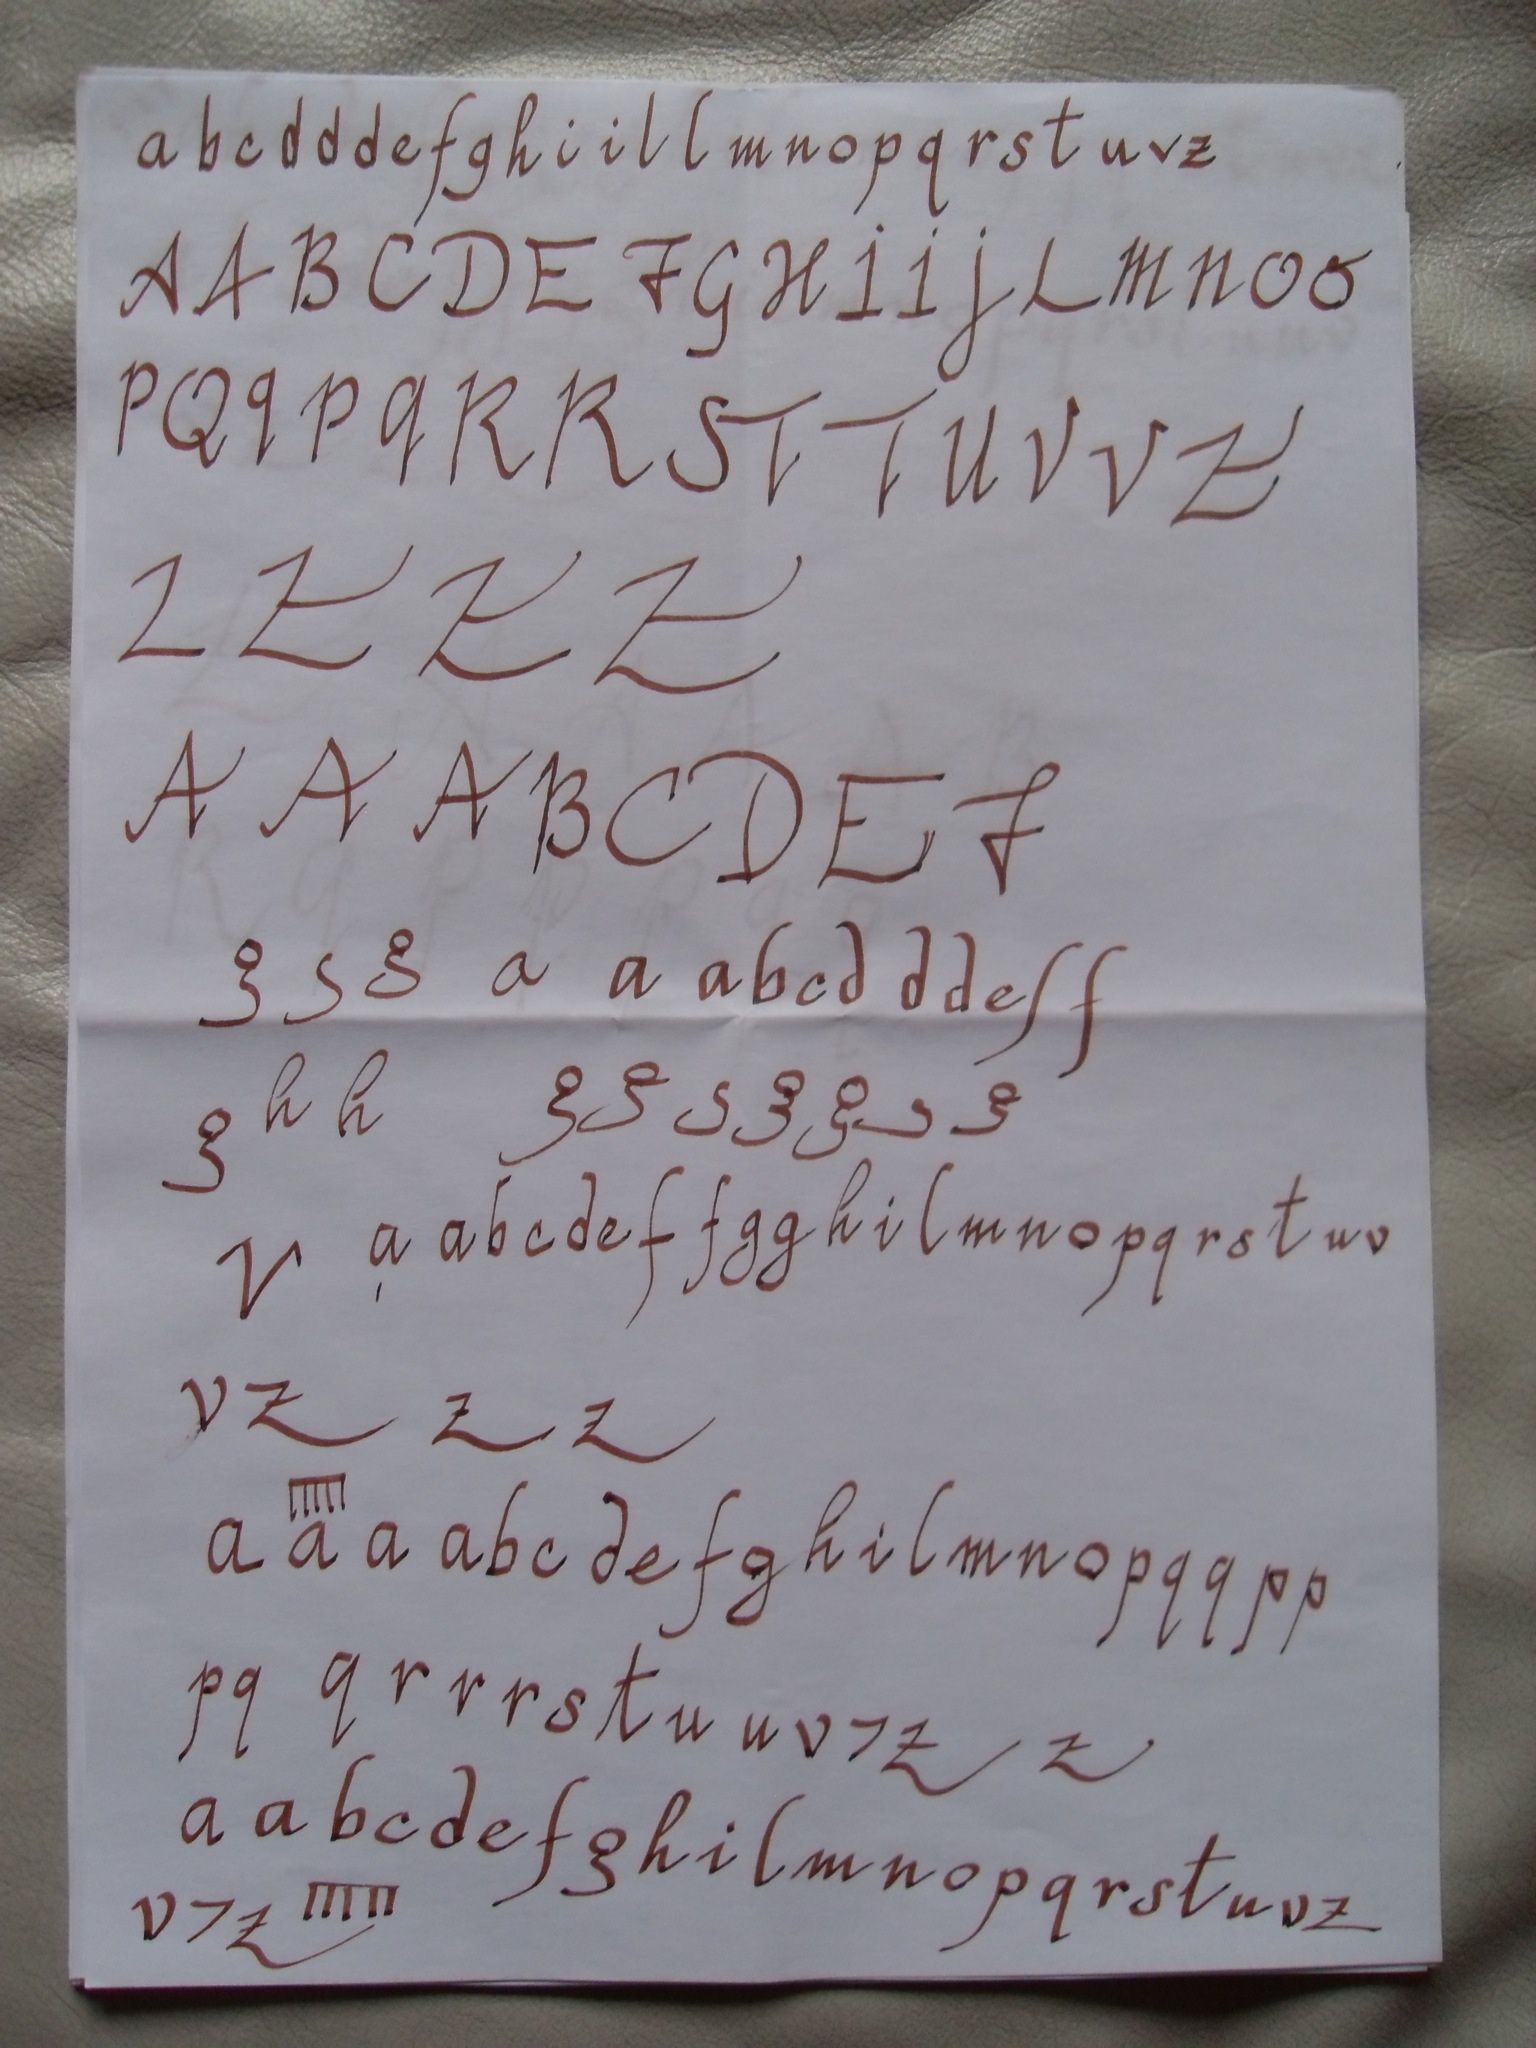 abcdddefghiillmnopqrstuvz
AABCDEFGHIijLMNOO
PQqPqRRSTTUVVZ
ZZZZ
AAABCDEF
gsg a a abcdddeff
g h h ggsgggsg
V a abcdeffgghilmnopqrstuv
vz z z
a a a abcdefghilmnopqqpp
pq qrrrstuuvvz z
aabcdefghilmnopqrstuvz
vvz